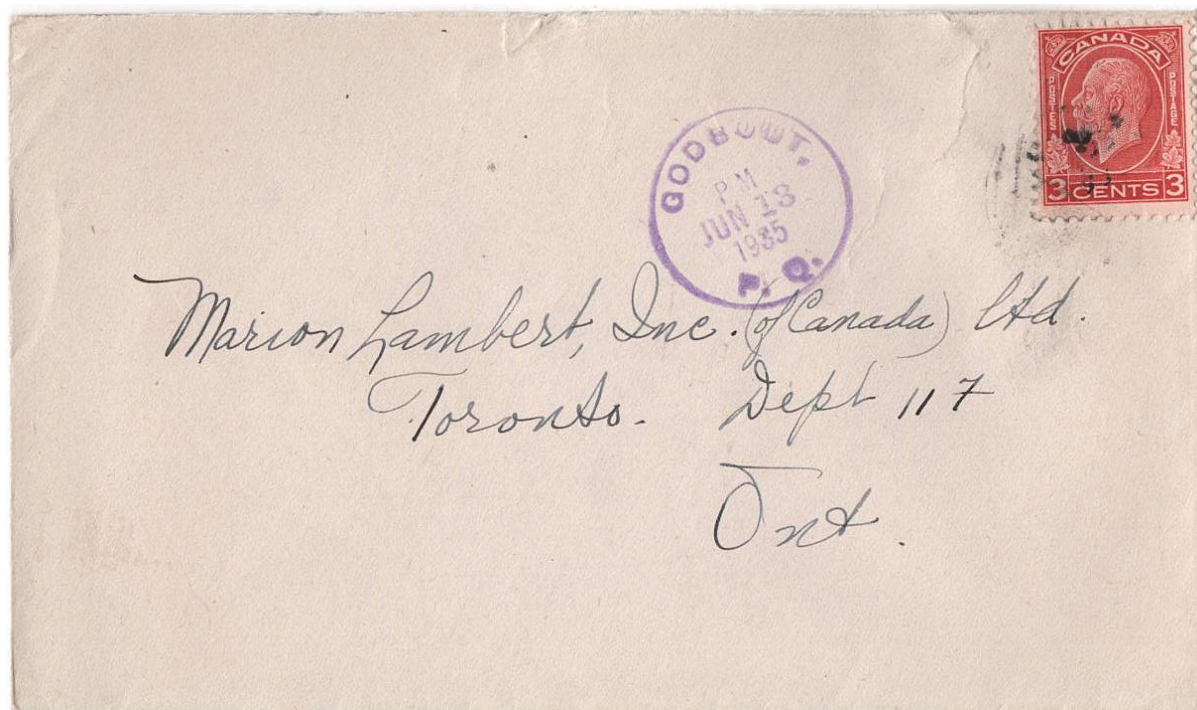 CANADA
POSTES
POSTAGE
3 CENTS 3
GODBOUT,
P M
JUN 13
1935
P. Q.
Marion Lambert, Inc. (of Canada) Ltd.
Toronto. Dept 117
Ont.